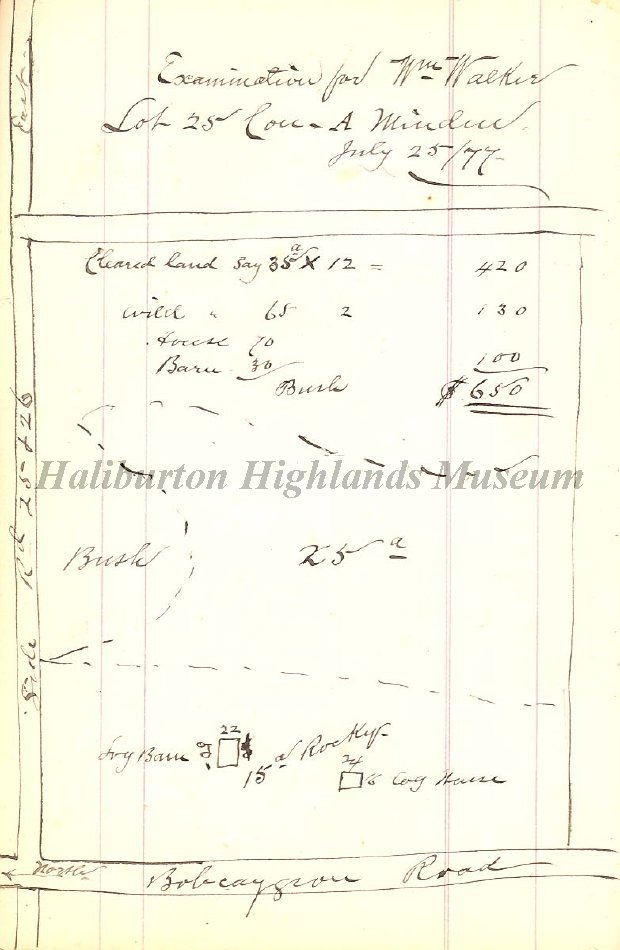 East
Examination for Wm Walker
Lot 25 Con - A Minden.
July 25/77-
Cleared land say 35a X 12 = 420
Wild " 65 2 130
House 70
Barn 30 100
Bush $650
Haliburton Highlands Museum
Side Rd 25 & 26
Bush 25 a
22
Log Barn
15 a Rocky
24
16 Log House
North
Bobcaygeon Road